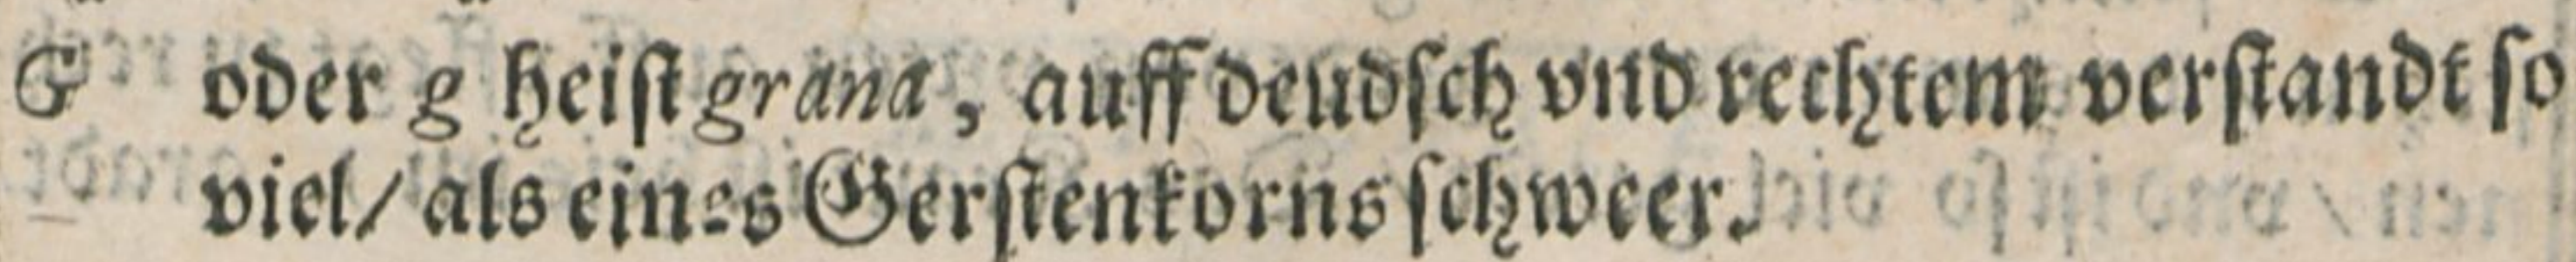 G oder g heiſt grana, auff deudſch vnd rechtem verſtandt ſo
viel/ als eines Gerſtenkorns ſchweer.